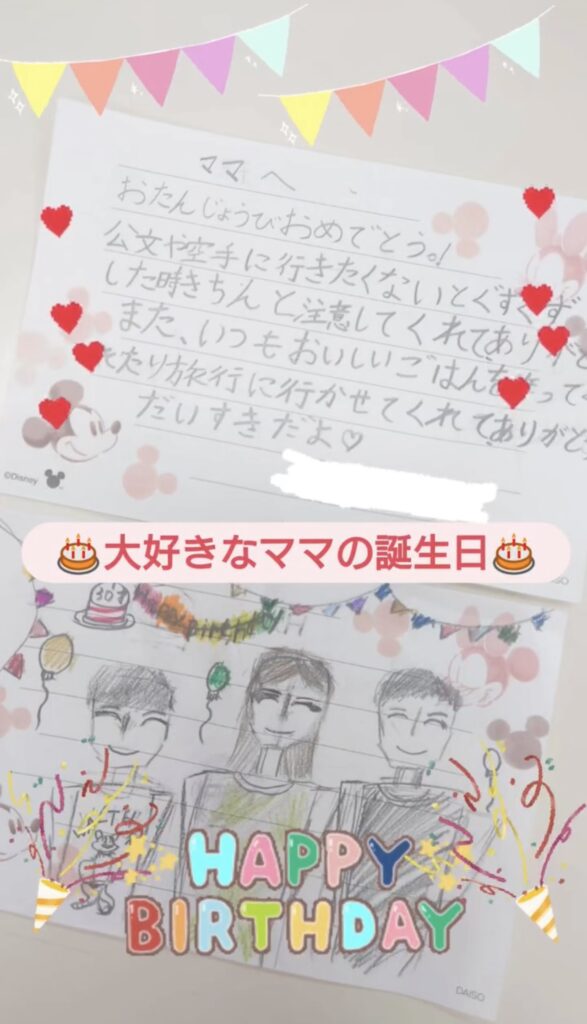 ママへ
おたんじょうびおめでとう。!
公文や空手に行きたくないとぐずぐず
した時きちんと注意してくれてありがと
また、いつもおいしいごはんを
たり旅行に行かせてくれてありがと
だいすきだよ♡
©Disney
🎂大好きなママの誕生日🎂
DAISO
HAPPY
BIRTHDAY
DAISO